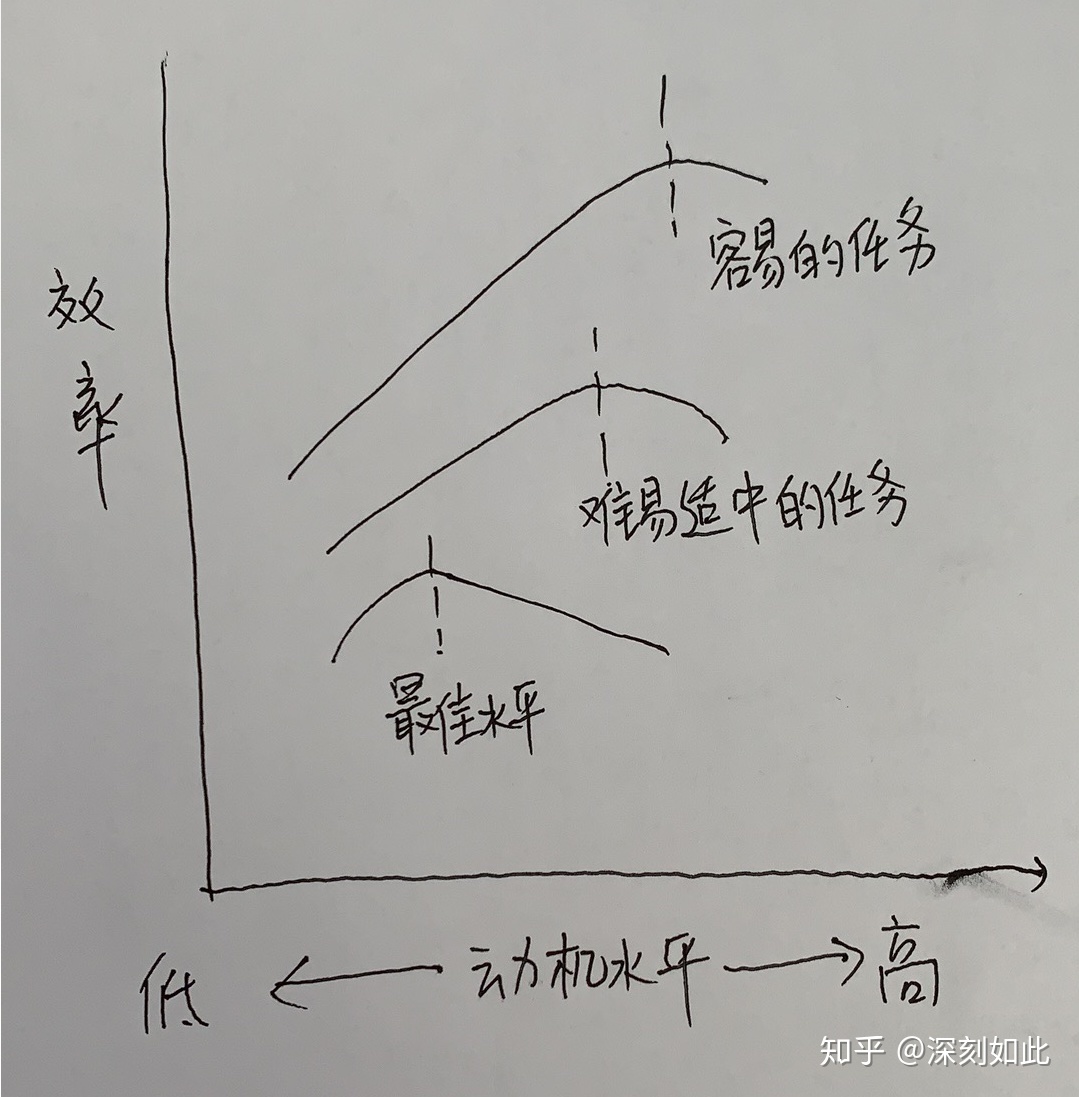 效率
容易的任务
难易适中的任务
最佳水平
低 ← 动机水平 → 高
知乎 @深刻如此